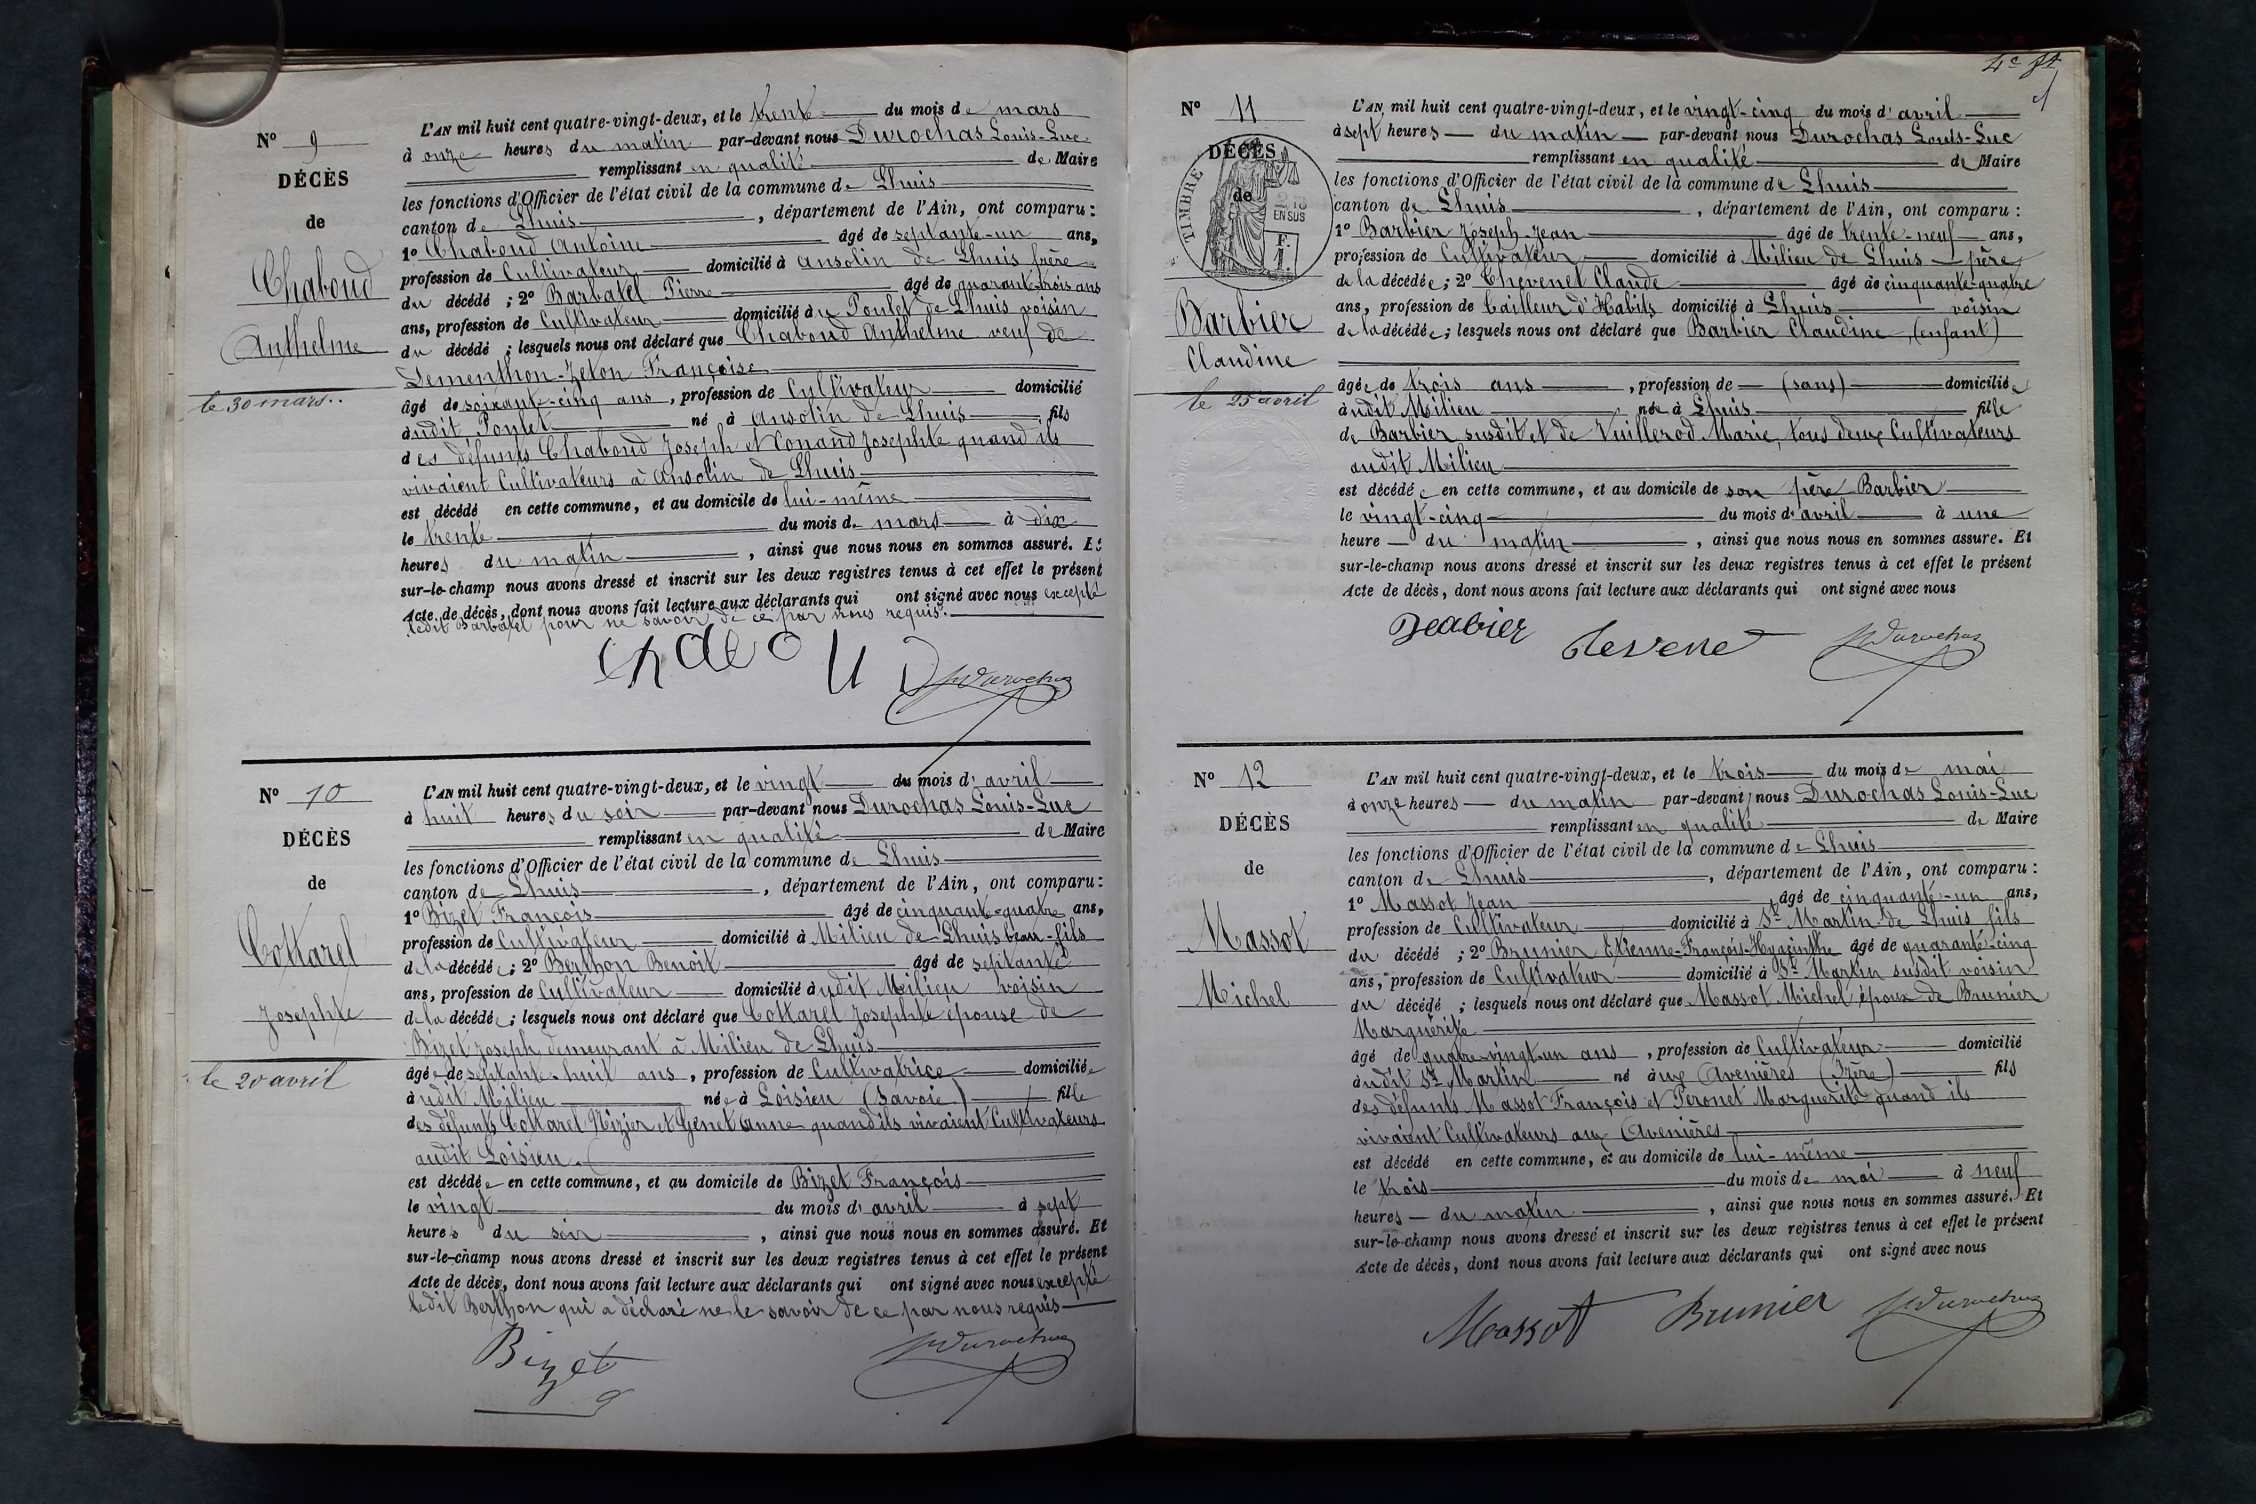 N° 9
DÉCÈS
de
Chaboud
Anthelme
le 30 mars..
L'AN mil huit cent quatre-vingt-deux, et le trente du mois de mars
à onze heures du matin par-devant nous Durochas Louis-Luc
remplissant en qualité de Maire
les fonctions d'Officier de l'état civil de la commune de Lhuis
canton de Lhuis, département de l'Ain, ont comparu :
1° Chaboud Antoine âgé de septante-un ans,
profession de Cultivateur domicilié à Ansolin de Lhuis frère
du décédé ; 2° Barbatel Pierre âgé de quarante-trois ans
ans, profession de Cultivateur domicilié au Poulet de Lhuis voisin
du décédé ; lesquels nous ont déclaré que Chaboud Anthelme veuf de
Dementhon-Zeton Françoise
âgé de soixante-cinq ans, profession de Cultivateur domicilié
audit Poulet né à Ansolin de Lhuis fils
des défunts Chaboud Joseph et Conand Josephte quand ils
vivaient Cultivateurs à Ansolin de Lhuis
est décédé en cette commune, et au domicile de lui-même
le trente du mois de mars à dix
heures du matin, ainsi que nous nous en sommes assuré. Et
sur-le-champ nous avons dressé et inscrit sur les deux registres tenus à cet effet le présent
Acte de décès, dont nous avons fait lecture aux déclarants qui ont signé avec nous excepté
ledit Barbatel pour ne savoir de ce par nous requis.
Chaboud Durochas
N° 10
DÉCÈS
de
Cottarel
Josephte
le 20 avril
L'AN mil huit cent quatre-vingt-deux, et le vingt du mois d'avril
à huit heures du soir par-devant nous Durochas Louis-Luc
remplissant en qualité de Maire
les fonctions d'Officier de l'état civil de la commune de Lhuis
canton de Lhuis, département de l'Ain, ont comparu :
1° Bizet François âgé de cinquante-quatre ans,
profession de Cultivateur domicilié à Milieu de Lhuis beau-fils
de la décédée ; 2° Berthon Benoit âgé de septante
ans, profession de Cultivateur domicilié audit Milieu voisin
de la décédée ; lesquels nous ont déclaré que Cottarel Josephte épouse de
Bizet Joseph demeurant à Milieu de Lhuis
âgée de septante-huit ans, profession de Cultivatrice domiciliée
audit Milieu née à Loisieu (Savoie) fille
des défunts Cottarel Nizier et Genet Anne quand ils vivaient Cultivateurs
audit Loisieu.
est décédée en cette commune, et au domicile de Bizet François
le vingt du mois d'avril à sept
heures du soir, ainsi que nous nous en sommes assuré. Et
sur-le-champ nous avons dressé et inscrit sur les deux registres tenus à cet effet le présent
Acte de décès, dont nous avons fait lecture aux déclarants qui ont signé avec nous excepté
ledit Berthon qui a déclaré ne le savoir de ce par nous requis
Bizet Durochas
4e ft
N° 11
DÉCÈS
de
TIMBRE
EN SUS
F.
1
Barbier
Claudine
le 25 avril
L'AN mil huit cent quatre-vingt-deux, et le vingt-cinq du mois d'avril
à sept heures du matin par-devant nous Durochas Louis-Luc
remplissant en qualité de Maire
les fonctions d'Officier de l'état civil de la commune de Lhuis
canton de Lhuis, département de l'Ain, ont comparu :
1° Barbier Joseph-Jean âgé de trente-neuf ans,
profession de Cultivateur domicilié à Milieu de Lhuis père
de la décédée ; 2° Chevenet Claude âgé de cinquante-quatre
ans, profession de Tailleur d'Habits domicilié à Lhuis voisin
de la décédée ; lesquels nous ont déclaré que Barbier Claudine, (enfant)
âgée de trois ans, profession de (sans) domiciliée
audit Milieu née à Lhuis fille
de Barbier susdit et de Vuillerod Marie, tous deux Cultivateurs
audit Milieu
est décédée en cette commune, et au domicile de son père Barbier
le vingt-cinq du mois d'avril à une
heure du matin, ainsi que nous nous en sommes assuré. Et
sur-le-champ nous avons dressé et inscrit sur les deux registres tenus à cet effet le présent
Acte de décès, dont nous avons fait lecture aux déclarants qui ont signé avec nous
Barbier Chevenet Durochas
N° 12
DÉCÈS
de
Massot
Michel
L'AN mil huit cent quatre-vingt-deux, et le trois du mois de mai
à onze heures du matin par-devant nous Durochas Louis-Luc
remplissant en qualité de Maire
les fonctions d'Officier de l'état civil de la commune de Lhuis
canton de Lhuis, département de l'Ain, ont comparu :
1° Massot Jean âgé de cinquante-un ans,
profession de Cultivateur domicilié à St Martin de Lhuis fils
du décédé ; 2° Brunier Etienne-François-Hyacinthe âgé de quarante-cinq
ans, profession de Cultivateur domicilié à St Martin susdit voisin
du décédé ; lesquels nous ont déclaré que Massot Michel, époux de Brunier
Marguerite
âgé de quatre-vingt-un ans, profession de Cultivateur domicilié
audit St Martin né aux Avenières (Izère) fils
des défunts Massot François et Peronet Marguerite quand ils
vivaient Cultivateurs aux Avenières
est décédé en cette commune, et au domicile de lui-même
le trois du mois de mai à neuf
heures du matin, ainsi que nous nous en sommes assuré. Et
sur-le-champ nous avons dressé et inscrit sur les deux registres tenus à cet effet le présent
Acte de décès, dont nous avons fait lecture aux déclarants qui ont signé avec nous
Massot Brunier Durochas